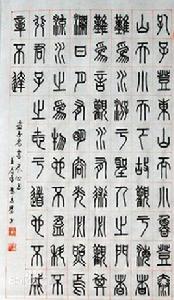 孔子登東山而小魯登泰
山而小天下故觀於海者
難為水遊於聖人之門者
難為言觀水有術必觀其
瀾日月有明容光必照焉
流水之為物也不盈科不
行君子之志於道也不成
章不達